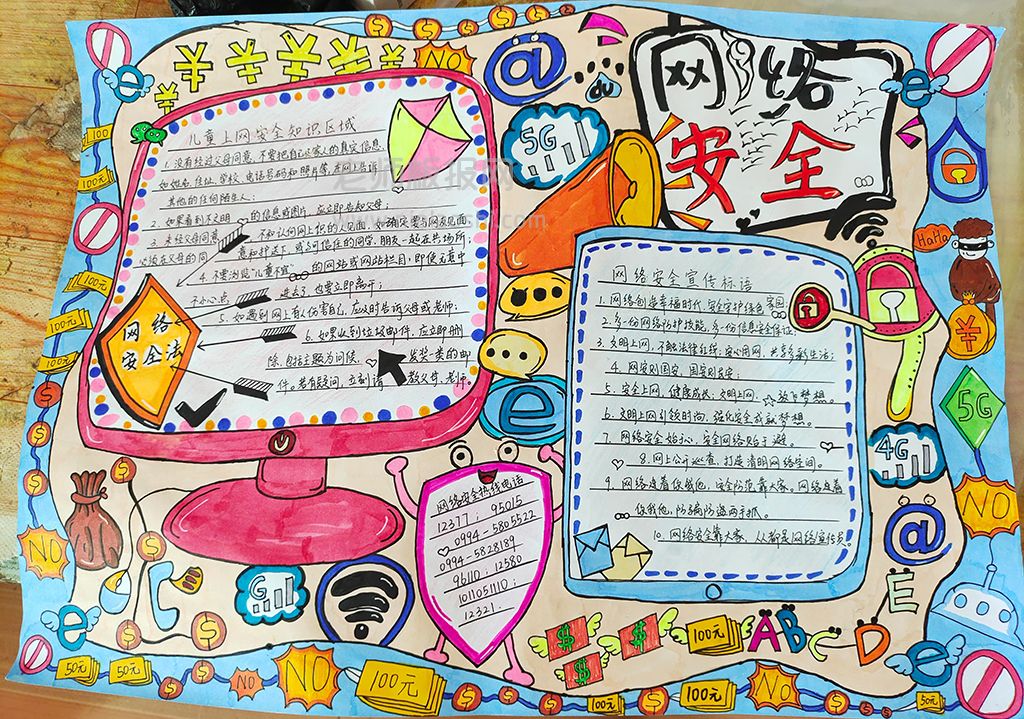 网络
安全
儿童上网安全知识区域
1.没有经过父母同意,不要把自己及家人的真实信息,
如姓名、住址、学校、电话号码和照片等,在网上告诉
其他的任何陌生人;
2.如果看到不文明的信息或图片,应立即告知父母;
3.未经父母同意,不和认何网上认识的人见面,如确定要与网友见面,
必须在父母的同意和护送下,或与可信任的同学、朋友一起在共场所;
4.不要浏览"儿童不宜"的网站或网站栏目,即使无意中
不小心点进去了,也要立即离开;
5.如遇到网上有人伤害自己,应及时告诉父母或老师.
6.如果收到垃圾邮件,应立即删
除.包括主题为问候、发奖一类的邮
件。若有疑问,立刻请教父母、老师。
网络
安全法
网络安全宣传标语
1.网络创造幸福时代,安全守护绿色家园
2.多一份网络防护技能,多一份信息安全保证.
3.文明上网,不触法律红线;安心用网,共享多彩生活;
4.网安则国安,国安则民安;
5.安全上网,健康成长,文明上网,放飞梦想。
6.文明上网引领时尚,强化安全成就梦想。
7.网络安全始于心,安全网络贵于
8.网上公开巡查,打造清明网络空间。
9.网络连着你我他,安全防范靠大家。网络连着
你我他,防骗防盗两手抓。
10.网络安全靠大家,人人都是网络宣传员。
网络安全热线电话
12377; 95015
0994-5805522
0994-5828189
96110; 12580
1011051110;
12321.
老师板报网
NO
@
du
5G
HaHa
¥
5G
4G
NO
@
e
G
NO
NO
NO
NO
A B C D E
$
$
$
100元
100元
100元
100元
50元
50元
50元
100元
100元
100元
100元